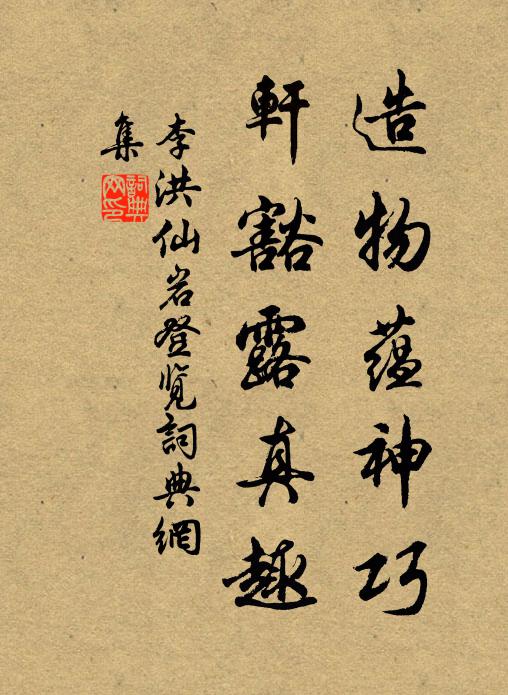 造物蕴神巧
軒豁露真趣
李洪仙岩登覽詞典網
集
詞典網印